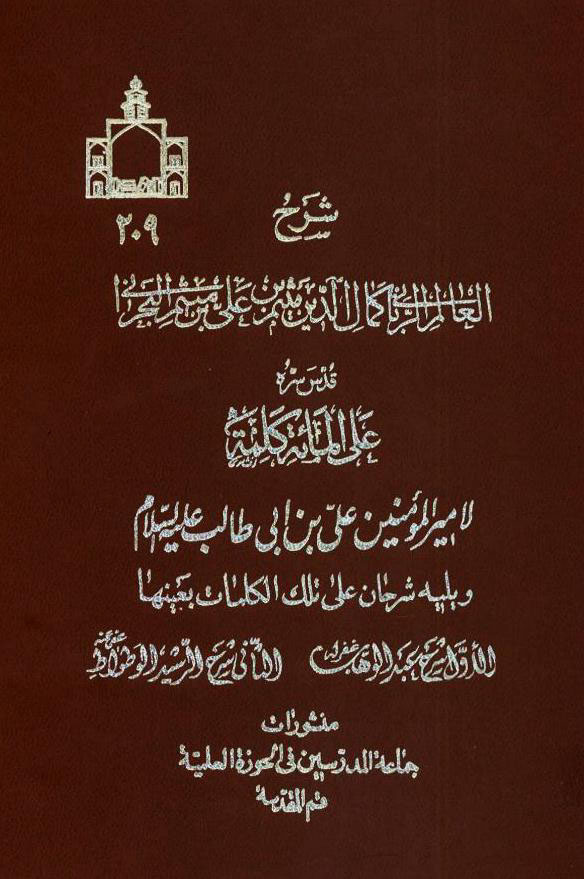 شَرْحُ
٢٠٩
العالم الربّاني كمال الدّين ميثم بن علي بن ميثم البحراني
قُدّس سرّه
عَلَى المِائَةِ كَلِمَةٍ
لامير المؤمنين عليّ بن ابي طالب عليه السلام
ويليه شرحان على تلك الكلمات بعَينها
الأوّل شرح عبدالوهّاب غفر له الثّاني شرح الرّشيد الوطواط عفي عنه
منشورات
جماعة المدرّسين في الحوزة العلميّة
قم المقدّسة